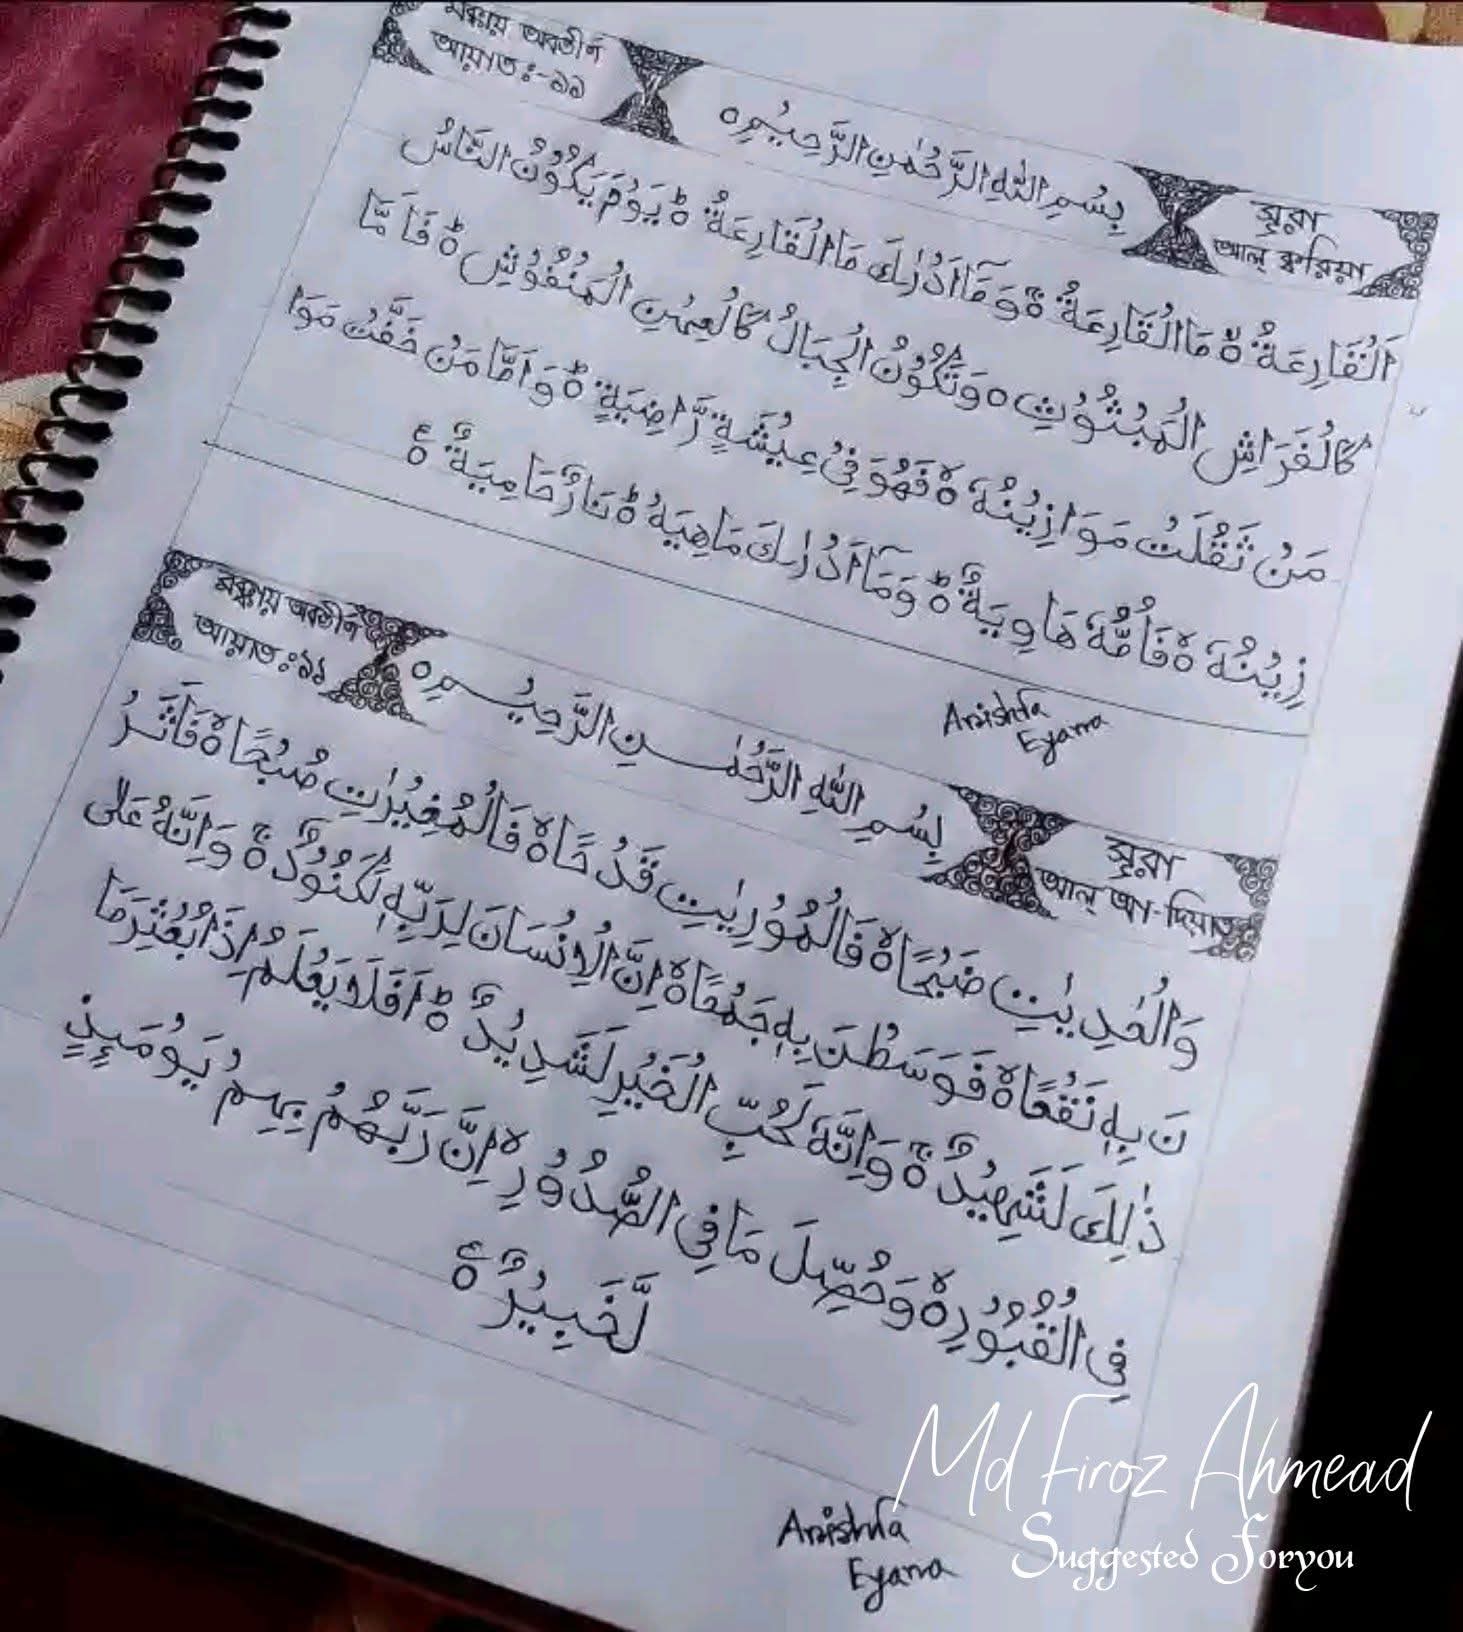 মক্কায় অবতীর্ণ
আয়াত:-১১
بِسْمِ اللّٰهِ الرَّحْمٰنِ الرَّحِيْمِ ○
সূরা
আল্ ক্বারিয়া
اَلْقَارِعَةُ ۙ مَا الْقَارِعَةُ ۚ وَمَاۤ اَدْرٰىكَ مَا الْقَارِعَةُ ؕ يَوْمَ يَكُوْنُ النَّاسُ
كَالْفَرَاشِ الْمَبْثُوْثِ ○ وَتَكُوْنُ الْجِبَالُ كَالْعِهْنِ الْمَنْفُوْشِ ؕ فَاَمَّا
مَنْ ثَقُلَتْ مَوَازِيْنُهٗ ۙ فَهُوَ فِيْ عِيْشَةٍ رَّاضِيَةٍ ؕ وَاَمَّا مَنْ خَفَّتْ مَوَا
زِيْنُهٗ ۙ فَاُمُّهٗ هَاوِيَةٌ ؕ وَمَاۤ اَدْرٰىكَ مَاهِيَهْ ؕ نَارٌ حَامِيَةٌ ○ ع
Anishfa
Eyana
মক্কায় অবতীর্ণ
আয়াত:১১
بِسْمِ اللّٰهِ الرَّحْمٰنِ الرَّحِيْمِ ○
সূরা
আল্ আ-দিয়াত
وَالْعٰدِيٰتِ ضَبْحًا ۙ فَالْمُوْرِيٰتِ قَدْحًا ۙ فَالْمُغِيْرٰتِ صُبْحًا ۙ فَاَثَرْ
نَ بِهٖ نَقْعًا ۙ فَوَسَطْنَ بِهٖ جَمْعًا ۙ اِنَّ الْاِنْسَانَ لِرَبِّهٖ لَكَنُوْدٌ ۚ وَاِنَّهٗ عَلٰى
ذٰلِكَ لَشَهِيْدٌ ۚ وَاِنَّهٗ لِحُبِّ الْخَيْرِ لَشَدِيْدٌ ؕ اَفَلَا يَعْلَمُ اِذَا بُعْثِرَ مَا
فِي الْقُبُوْرِ ۙ وَحُصِّلَ مَا فِي الصُّدُوْرِ ۙ اِنَّ رَبَّهُمْ بِهِمْ يَوْمَئِذٍ
لَّخَبِيْرٌ ○ ع
Anishfa
Eyana
Md Firoz Ahmead
Suggested Foryou